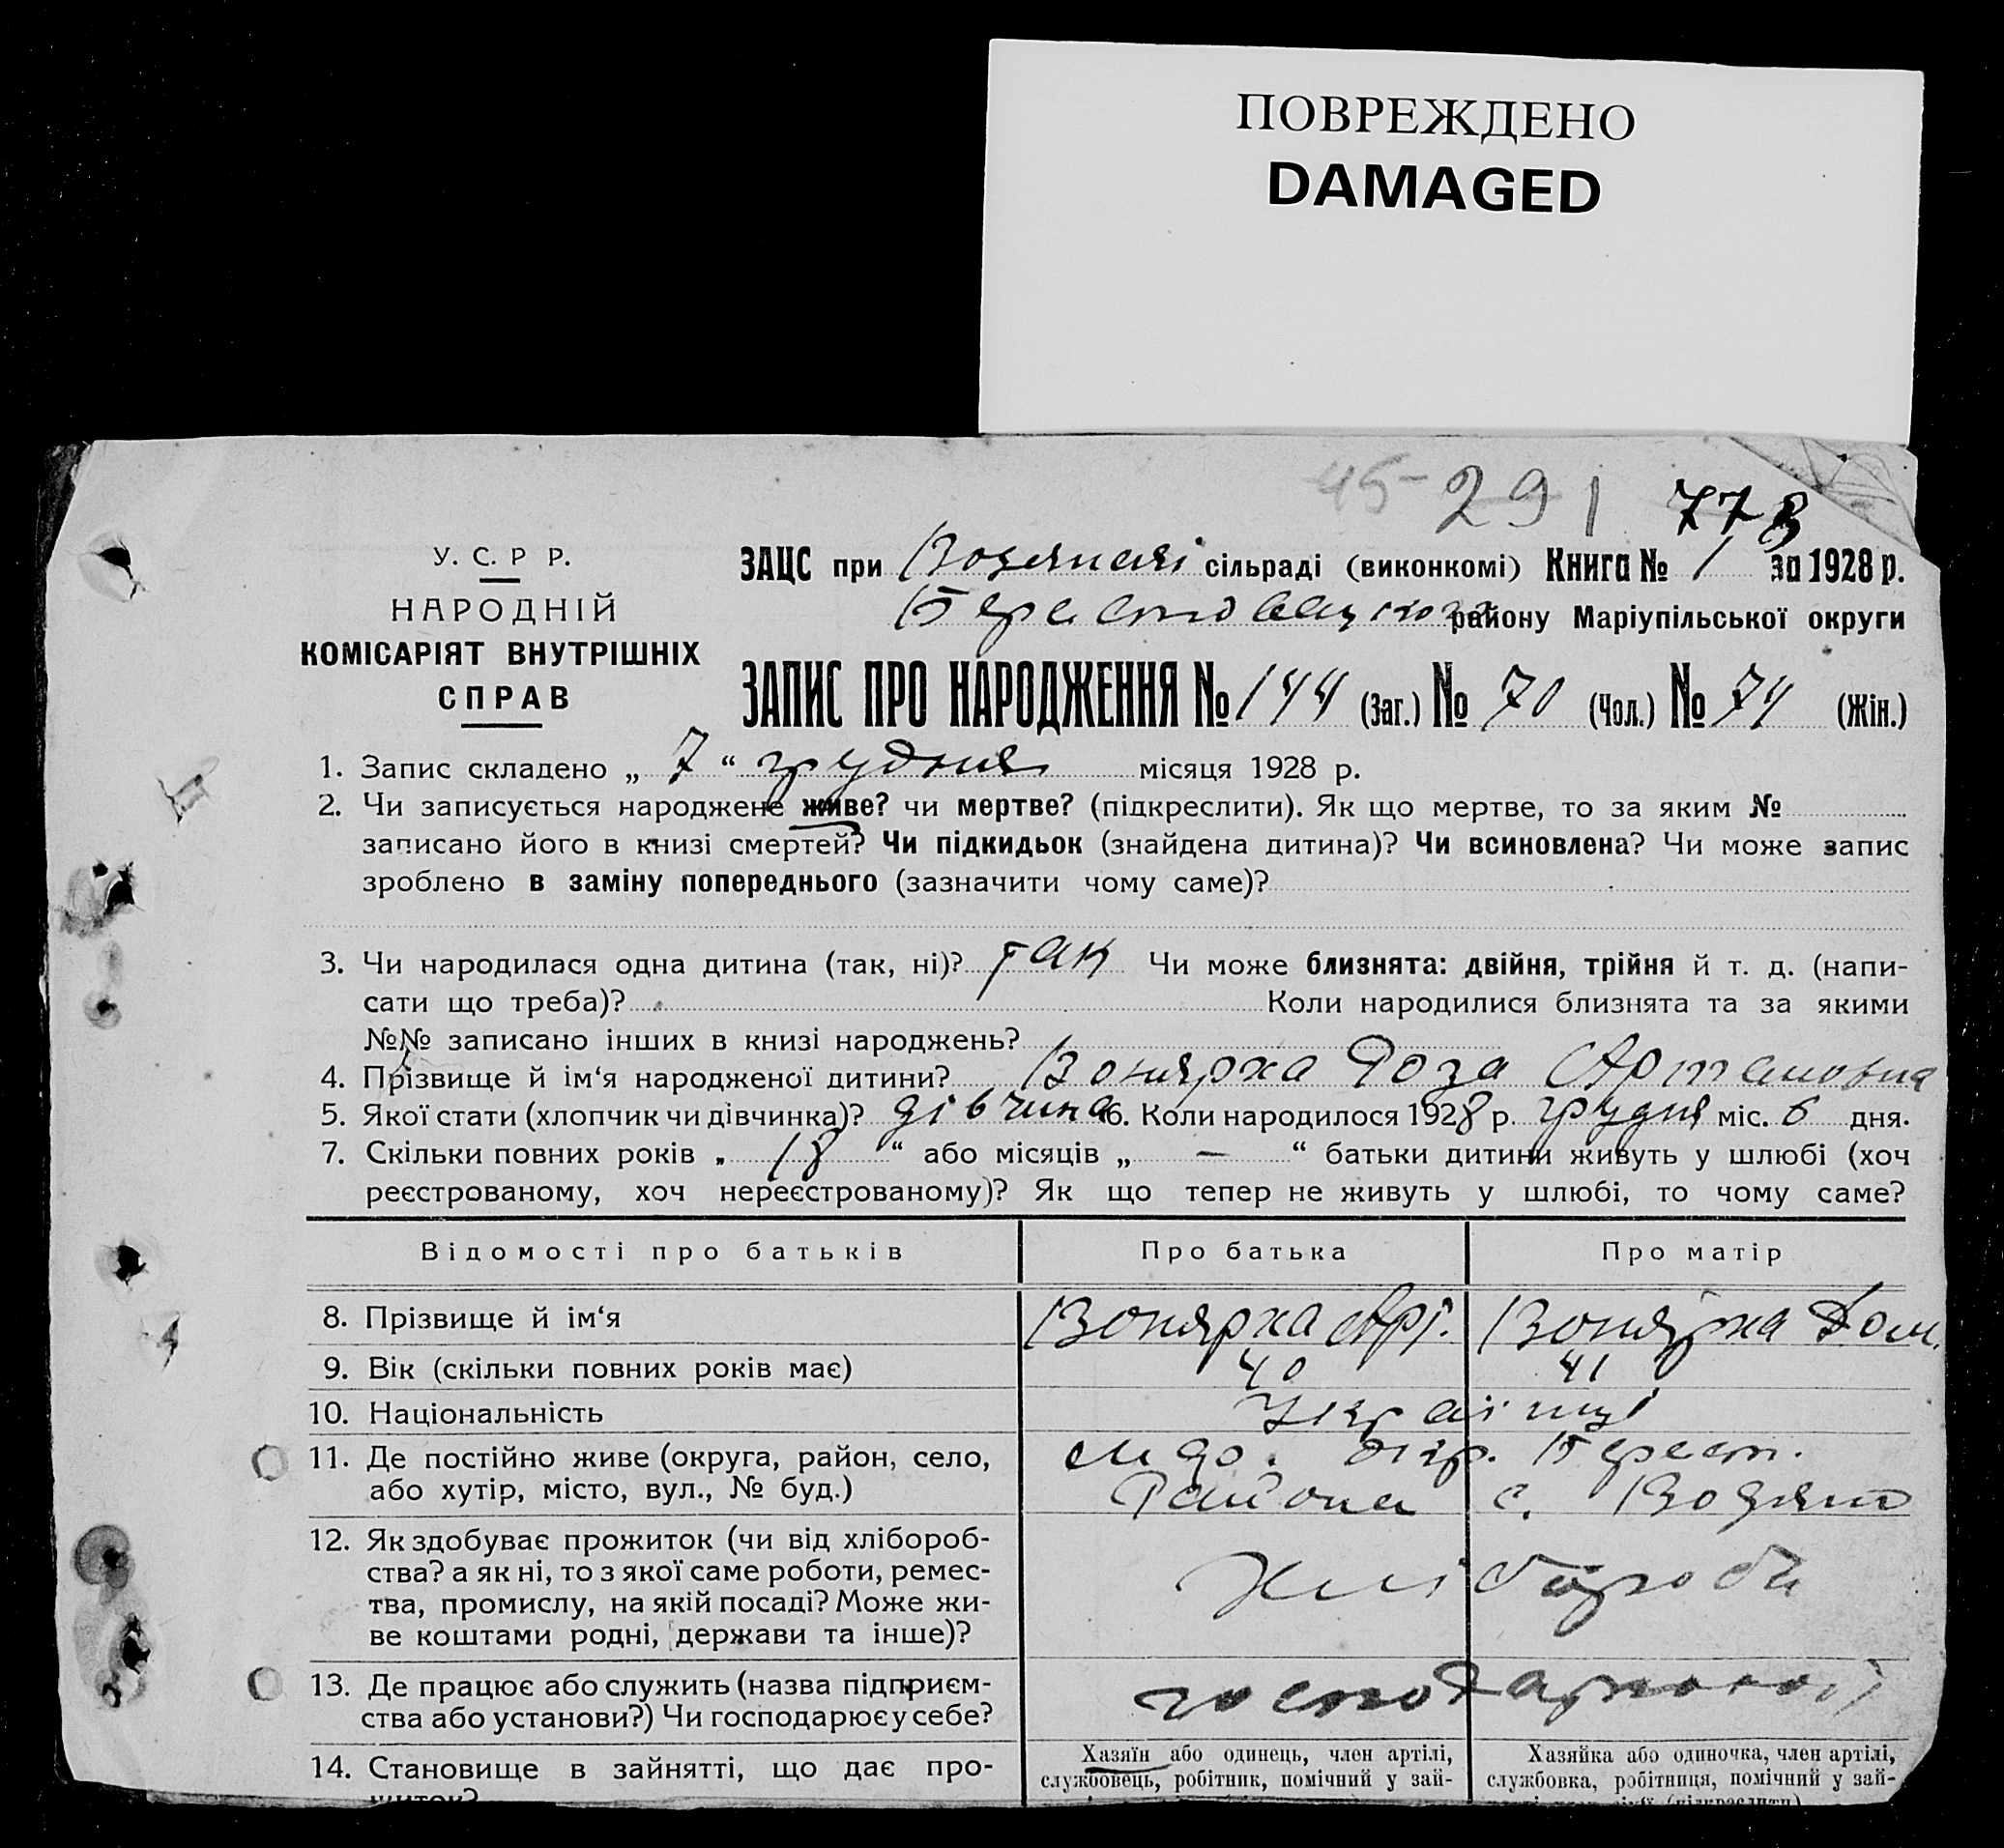 ПОВРЕЖДЕНО
DAMAGED
45 291 778
У. С. Р Р.
НАРОДНІЙ
КОМІСАРІЯТ ВНУТРІШНІХ
СПРАВ
ЗАЦС при сільраді (виконкомі) Книга № 1 за 1928 р.
району Маріупільської округи
ЗАПИС ПРО НАРОДЖЕННЯ № 144 (Заг.) № 70 (Чол.) № 74 (Жін.)
1. Запис складено „ 7 “ грудня місяця 1928 р.
2. Чи записується народжене живе? чи мертве? (підкреслити). Як що мертве, то за яким №
записано його в книзі смертей? Чи підкидьок (знайдена дитина)? Чи всиновлена? Чи може запис
зроблено в заміну попереднього (зазначити чому саме)?
3. Чи народилася одна дитина (так, ні)? так Чи може близнята: двійня, трійня й т. д. (напи-
сати що треба)? Коли народилися близнята та за якими
№№ записано інших в книзі народжень?
4. Прізвище й ім‘я народженої дитини? Вонярха Роза
5. Якої стати (хлопчик чи дівчинка)? дівчина 6. Коли народилося 1928 р. грудня міс. 6 дня.
7. Скільки повних років „ 18 “ або місяців „ — “ батьки дитини живуть у шлюбі (хоч
реєстрованому, хоч нереєстрованому)? Як що тепер не живуть у шлюбі, то чому саме?
Відомості про батьків Про батька Про матір
8. Прізвище й ім‘я Вонярха Арт. Вонярха Дом.
9. Вік (скільки повних років має) 40 41
10. Національність Українці
11. Де постійно живе (округа, район, село, окр. Берест.
або хутір, місто, вул., № буд.) Района с. Водяно
12. Як здобуває прожиток (чи від хлібороб-
ства? а як ні, то з якої саме роботи, ремес-
тва, промислу, на якій посаді? Може жи-
ве коштами родні, держави та інше)?
Хлібороби
13. Де працює або служить (назва підприєм-
ства або установи?) Чи господарює у себе?
14. Становище в зайнятті, що дає про-
житок?
Хазяїн або одинець, член артілі,
службовець, робітник, помічний у зай-
Хазяйка або одиночка, член артілі,
службовка, робітниця, помічний у зай-